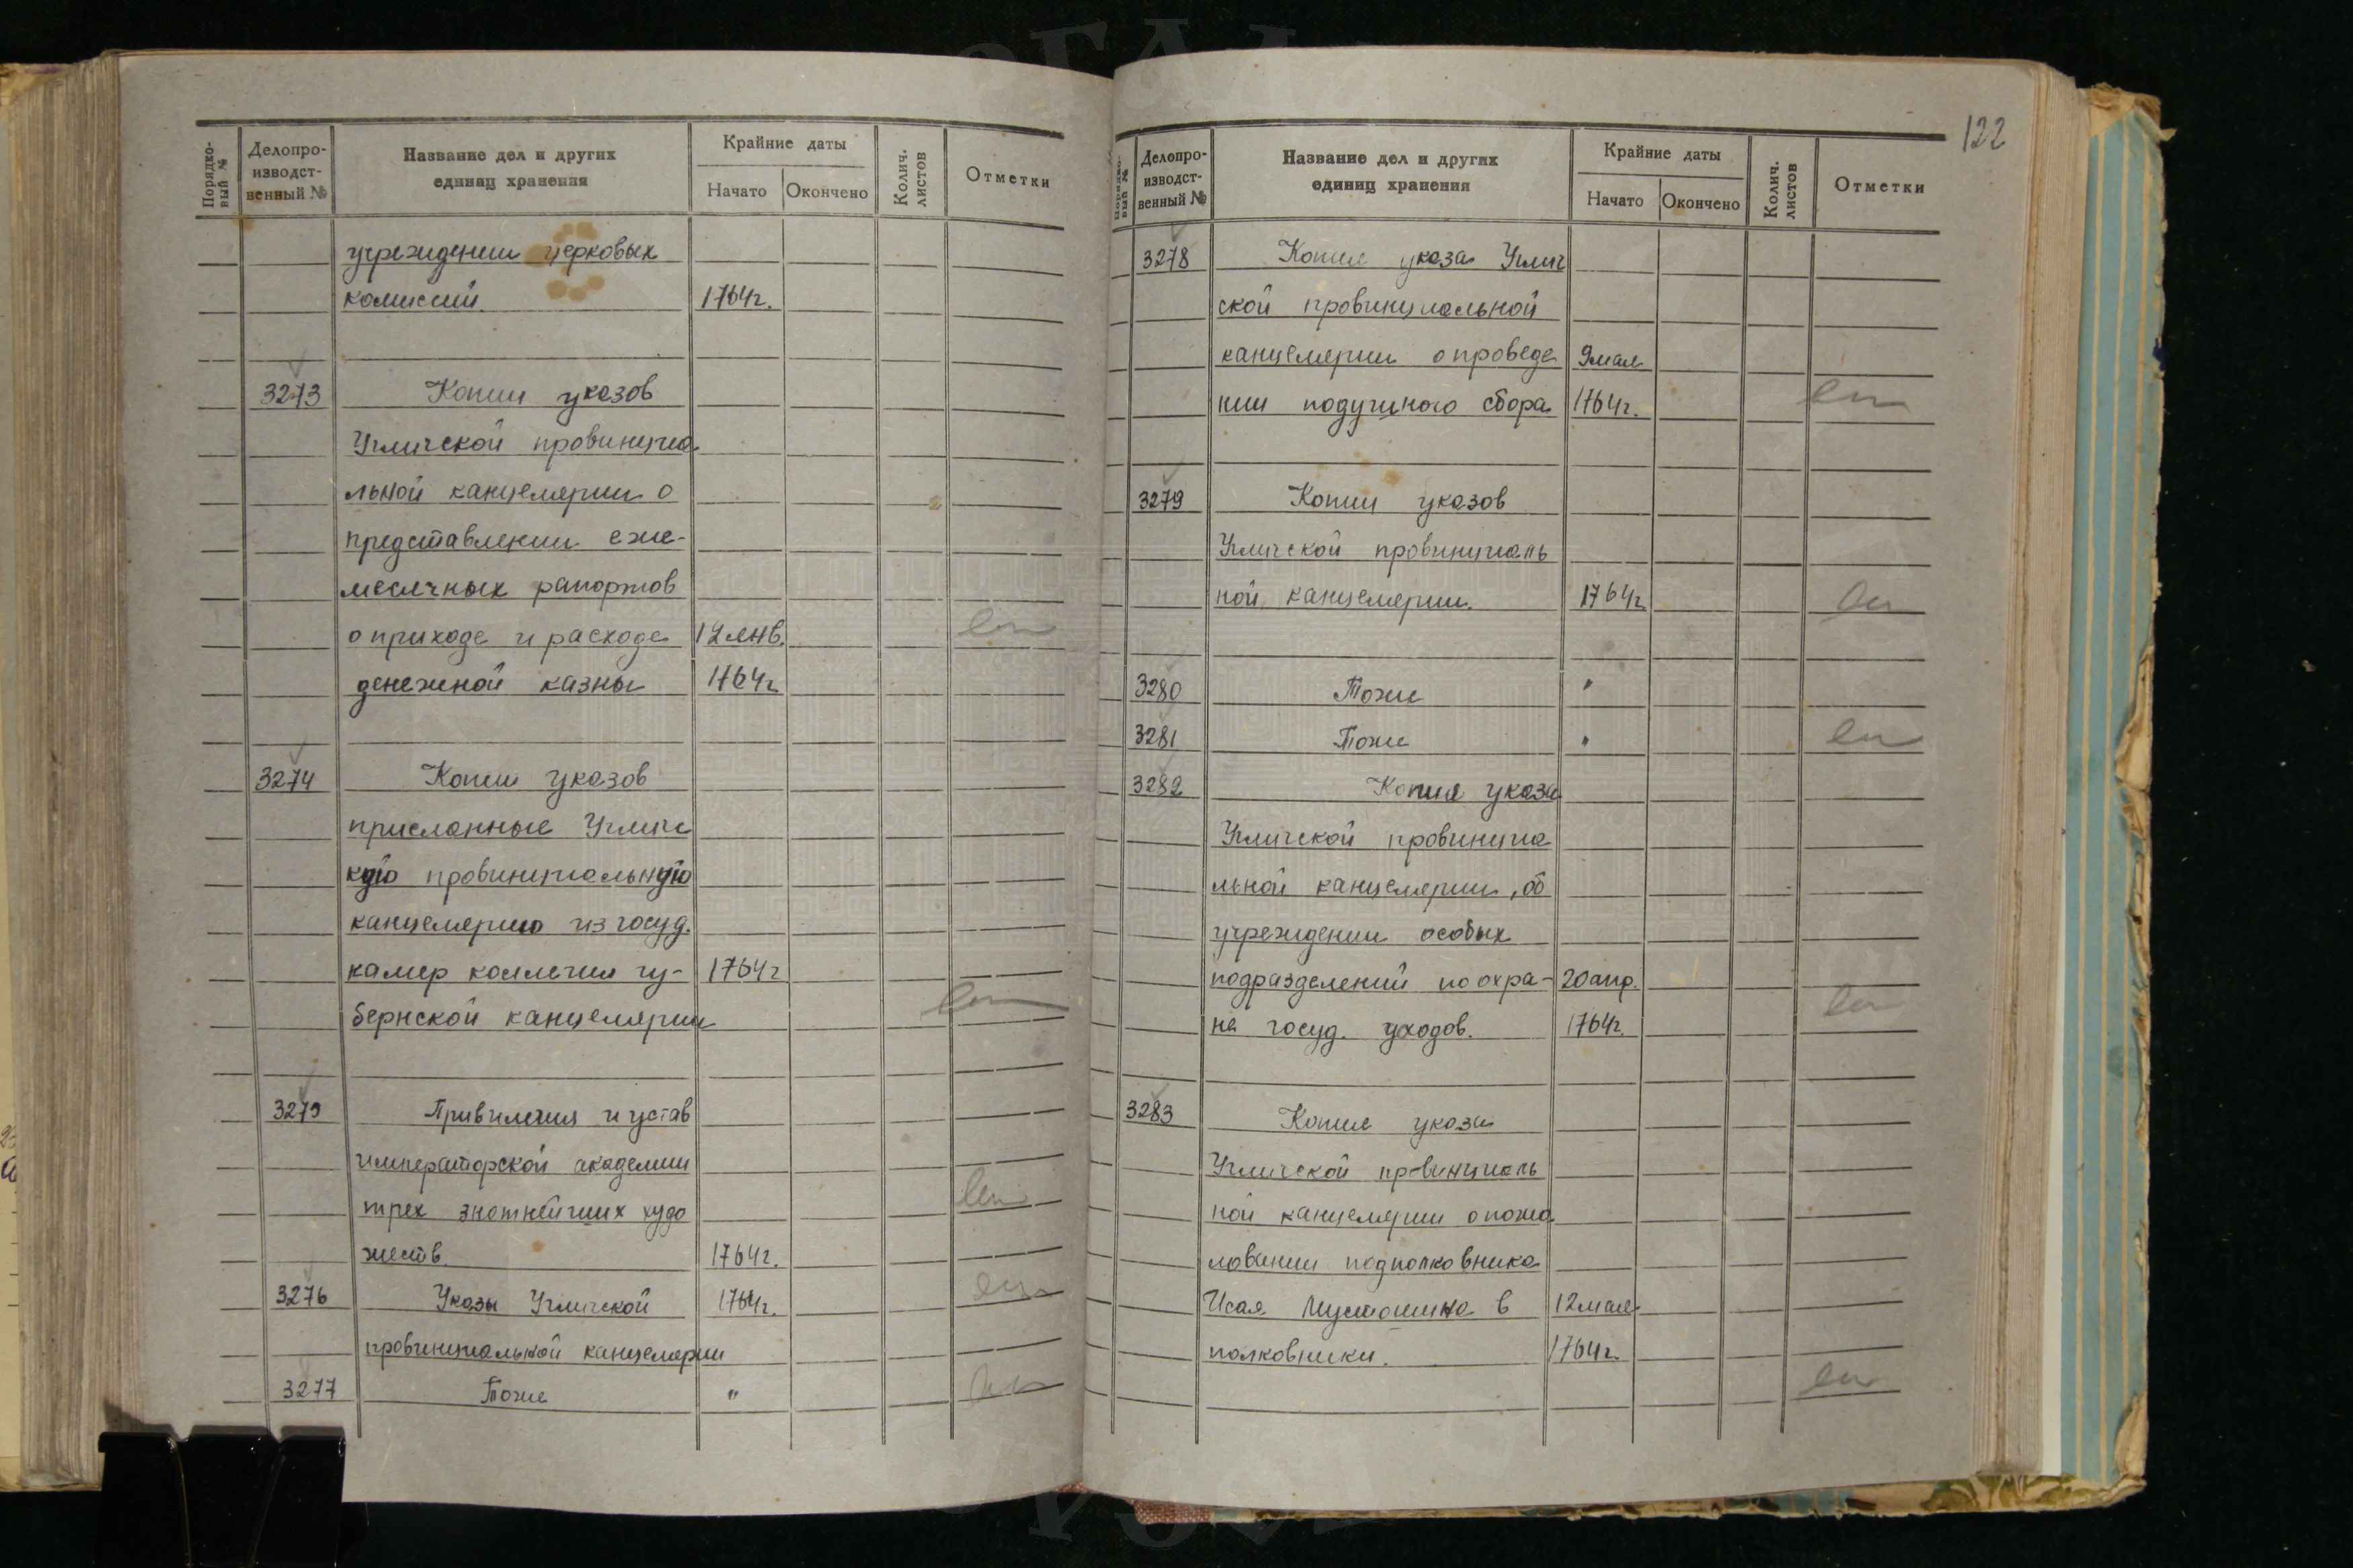 Порядко-
вый №
Делопро-
изводст-
венный №
Название дел и других
единиц хранения
Крайние даты
Начато
Окончено
Колич.
листов
Отметки
учреждении церковых
комиссий. 1764г.
3273 Копии указов
Угличской провинциа
льной канцелярии о
представлении еже-
месячных рапортов
о приходе и расходе 12 янв.
денежной казны 1764г
3274 Копии указов
присланные Углич
кую провинциальную
канцелярию из госуд.
камер коллегия гу- 1764г
бернской канцелярии
3275 Привилегия и устав
императорской академии
трех знатнейших худо
жеств. 1764г.
3276 Указы Угличской 1764г.
провинциальной канцелярии
3277 Тоже "
122
Порядко-
вый №
Делопро-
изводст-
венный №
Название дел и других
единиц хранения
Крайние даты
Начато
Окончено
Колич.
листов
Отметки
3278 Копия указа Углич
ской провинциальной
канцелярии о проведе 9 мая
нии подушного сбора 1764г.
3279 Копии указов
Угличской провинциаль
ной канцелярии. 1764г
3280 Тоже "
3281 Тоже "
3282 Копия указа
Угличской провинциа
льной канцелярии, об
учреждении особых
подразделений по охра- 20 апр.
не госуд. уходов. 1764г.
3283 Копия указа
Угличской провинциаль
ной канцелярии о пожа
ловании подполковника
Исая в 12 мая
полковники. 1764г.